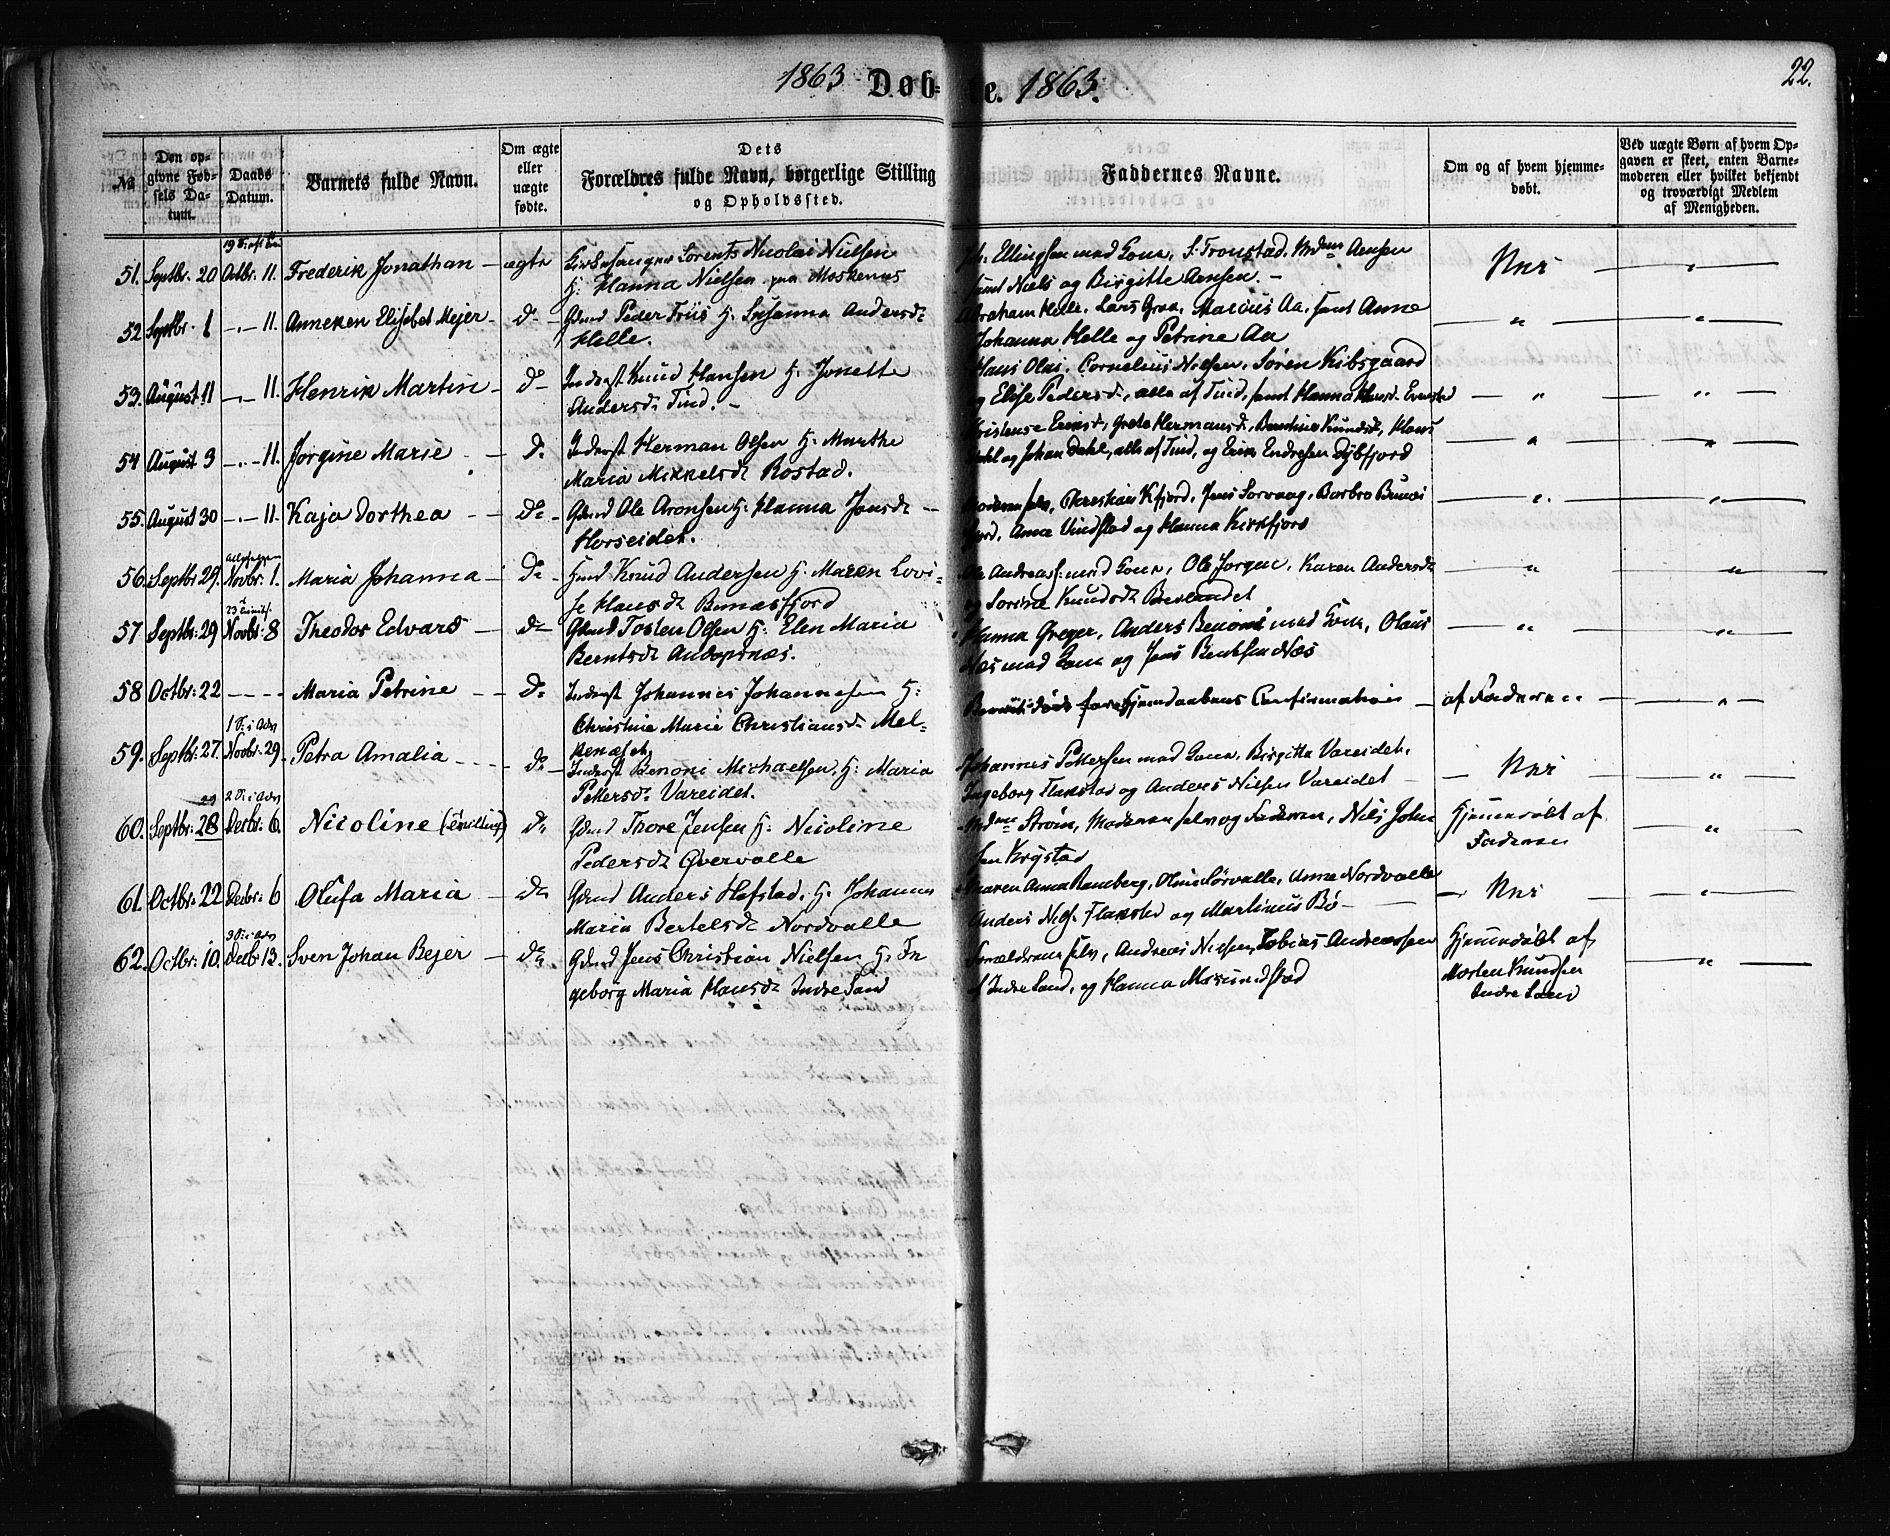 1863 Døb- te. 1863. 22.
No
Den opgivne Fødsels Datum.
Daabs Datum.
Barnets fulde Navn.
Om ægte eller uægte fødte.
Dets Forældres fulde Navn, borgerlige Stilling og Opholdssted.
Faddernes Navne.
Om og af hvem hjemmedøbt.
Ved uægte Børn af hvem Opgaven er skeet, enten Barnemoderen eller hvilket bekjendt og troværdigt Medlem af Menigheden.
51. Septbr. 20 Octbr. 11. Frederik Jonathan – ægte Kirkesanger Lorents Nicolai Nielsen
H. Hanna Nielsen Moskenes
Ellingsen med Kone, S. Tronstad, Mdme Aensen
samt Niels og Birgitte Aensen. – Nei — "
52 Septbr. 1 -"- 11. Anneken Elisabet Mejer – do – Gdmd Peder Friis H. Susanna Andersdr
Helle.
Abraham Helle, Lars Graa, Marcus Aa, samt Anne
Johanna Helle og Petrine Aa — " — "
53. August 11 -"- 11. Henrik Martin – do – Inderst Knud Hansen H. Jonette
Andersdr Tind. –
Hans Olai, Cornelius Nielsen, Søren Kibsgaard
og Elise Pedersdr, alle af Tind, samt Hanna — " — "
54 August 3 -"- 11. Jørgine Marie – do Inderst Herman Olsen H. Marthe
Maria Mikkelsdr Rostad.
Eriksdr, Grete Hermansdr, Knudsdr, Hans
Dahl og Johan Dahl, alle af Tind, og Erik Endresen Dybfjord — " — "
55. August 30 -"- 11. Kaja Dorthea – do – Gdmd Ole Aronsen H. Hanna Jonsdr –
Horseidet.
Moderen selv, Christian Kfjord, Jens Sorvaag, Barbro Bunæs
fjord, Anne Vindstad og Hanna Kirkfjord — " — "
56. Septbr 29. Novbr: 1. Maria Johanna – do – Hmd Knud Andersen H. Maren Lovi-
se Hansdr Bunæsfjord
Ole Andreas med Kone, Ole Jørgen, Karen Andersdr
og Sorine Knudsdr — " — "
57 Septbr: 29 Novbr: 8 Theodor Edvard – do Gdmd Tosten Olsen H. Elen Maria
Berntsdr Andopsnæs.
Hanna Greger, Anders Benoni med Kone, Olaus
Næs med Kone og Jens Næs — " — "
58 Octbr: 22 - - - - Maria Petrine – – do Inderst Johannes Johannesen H:
Christine Marie Christiansdr Mel-
kenæset,
Barnet døde før Hjemdaabens Confirmation — af Faderen — "
59. Septbr: 27. Novbr: 29. Petra Amalia – – – do – Inderst Benoni Michaelsen, H: Maria
Pettersdr Vareidet.
Johannes Pettersen med Kone, Birgitte Vareidet,
Ingeborg Flakstad og Anders Nielsen Vareidet — Nei — "
60. Septbr: 28 Decbr: 6. Nicoline do Gdmd Thore Jensen H: Nicoline
Pedersdr Overvolle
Mdme Strøm, Moderen selv og Faderen, Niels John
sen Krystad
Hjemmedøbt af
Faderen — "
61. Octbr: 22 Decbr: 6 Olufa Maria – do Gdmd Anders Hofstad, H. Johanne
Maria Bertelsdr Nordvolle
Maren Anna Ramberg, Oline Sørvolle, Anne Nordvolle
Anders Flakstad og Martinus Bø — – Nei — "
62. Octbr: 10. Decbr 13. Sven Johan Bejer – do Gdmd Jens Christian Nielsen H: In
geborg Maria Hansdr Indre Sand
Forældrene selv, Andreas Nielsen, Tobias Andreassen
af Indre Sand, og Hanna
Hjemmedøbt af
Morten Knudsen
Indre Sand — "